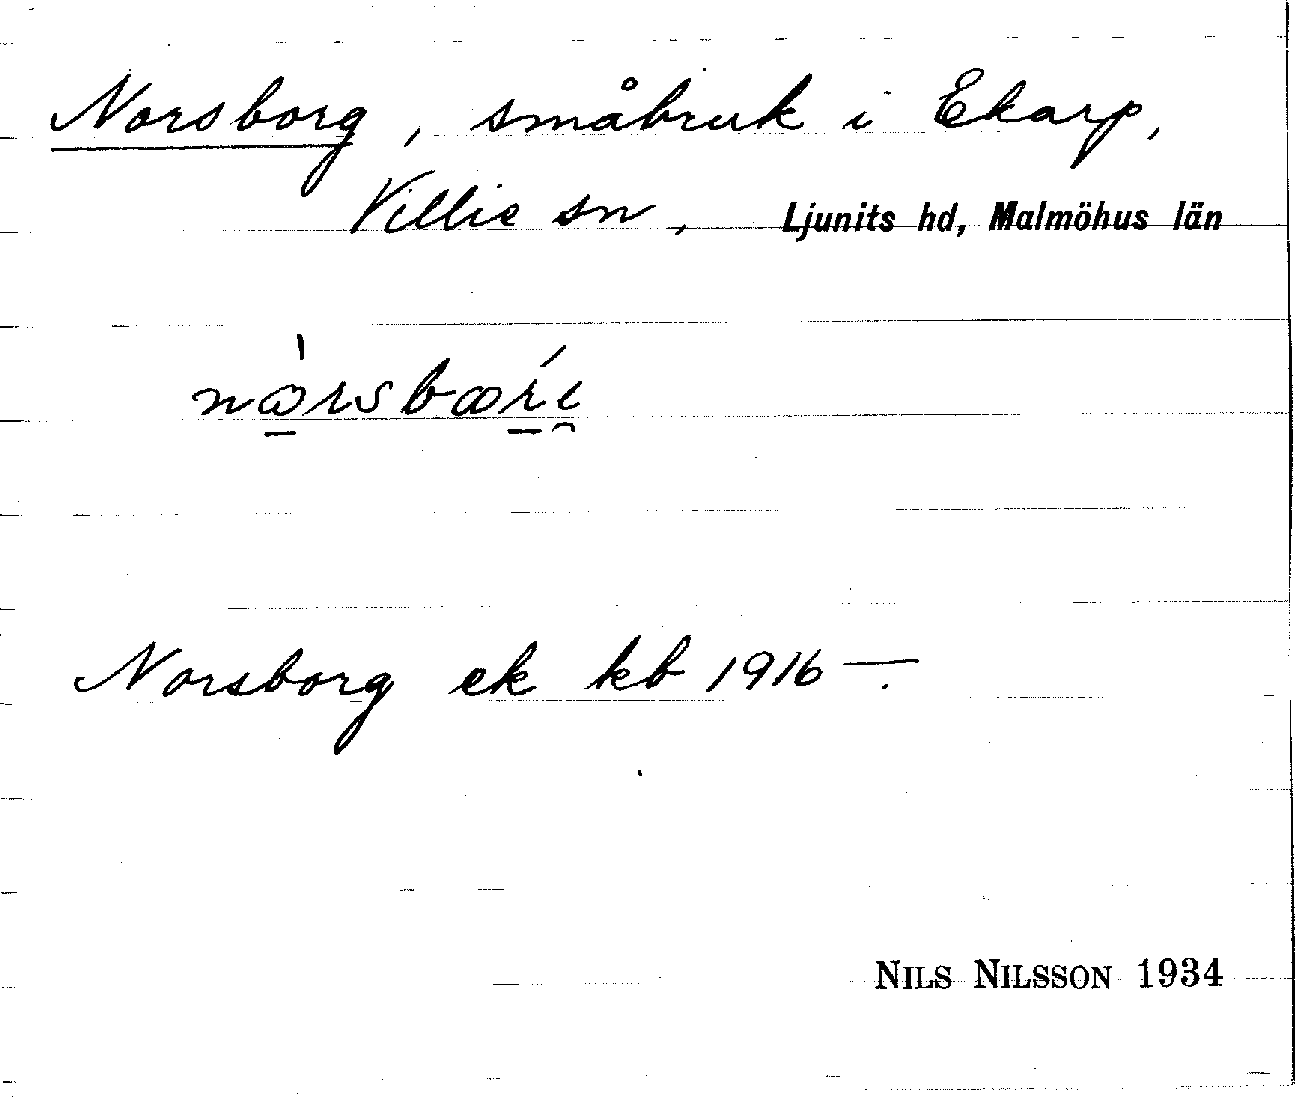 Norsborg, småbruk i Ekarp,
Villie sn, Ljunits hd, Malmöhus län
Norsborg ek kb 1916 —.
NILS NILSSON 1934